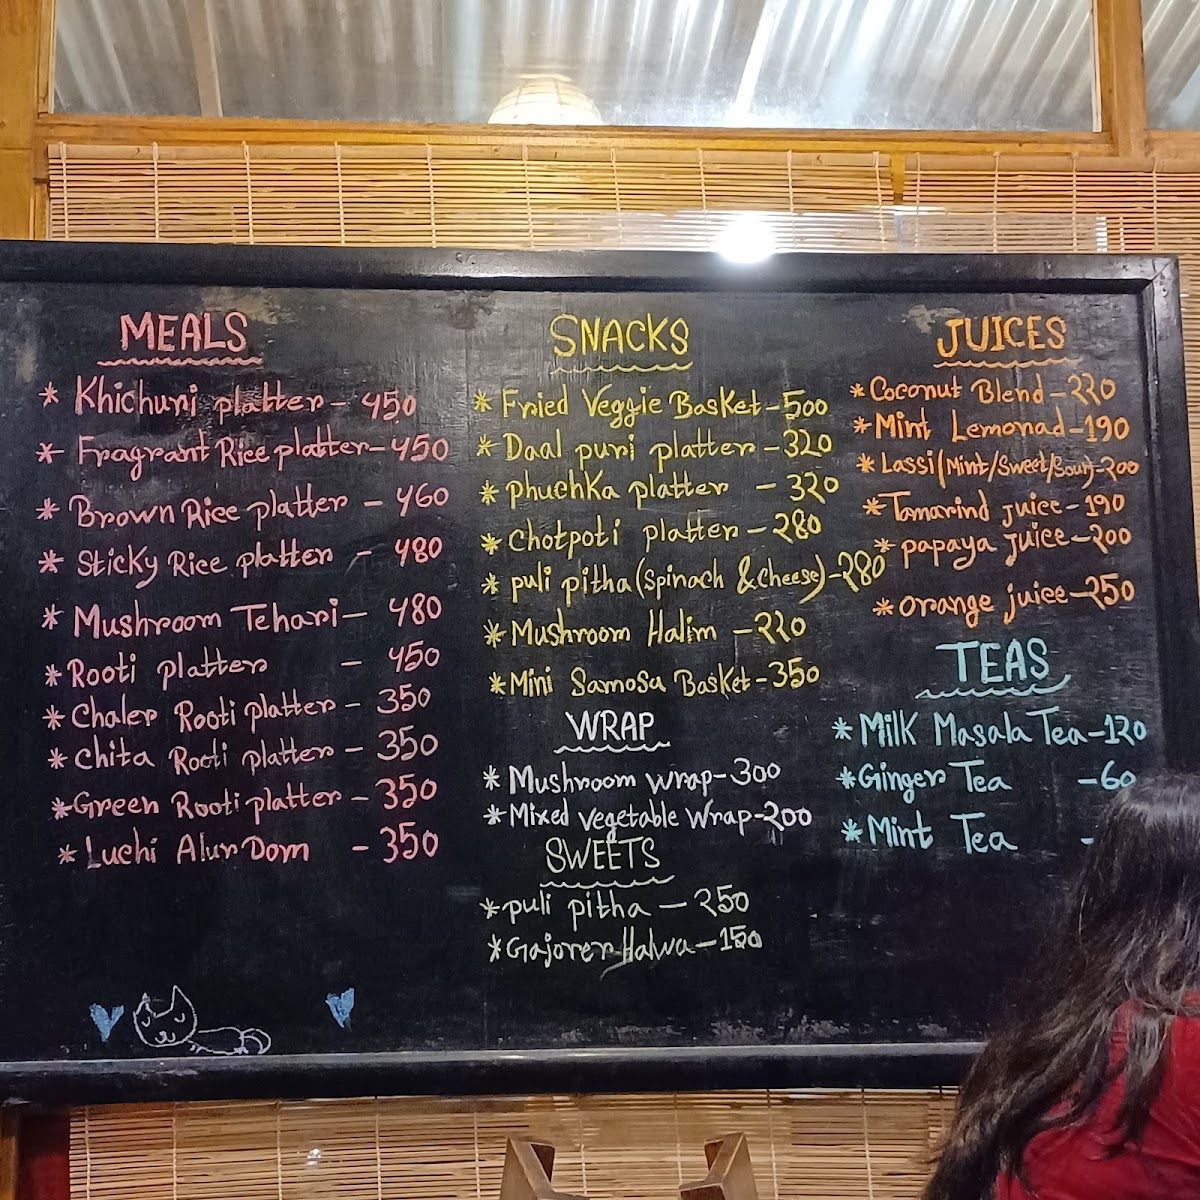 MEALS
* Khichuri platter - 450
* Fragrant Rice platter - 450
* Brown Rice platter - 460
* Sticky Rice platter - 480
* Mushroom Tehari - 480
* Rooti platter - 450
* Chaler Rooti platter - 350
* Chita Rooti platter - 350
* Green Rooti platter - 350
* Luchi Alur Dom - 350
SNACKS
* Fried Veggie Basket - 500
* Daal puri platter - 320
* Phuchka platter - 320
* Chotpoti platter - 280
* puli pitha (Spinach & Cheese) - 280
* Mushroom Halim - 220
* Mini Samosa Basket - 350
WRAP
* Mushroom wrap - 300
* Mixed vegetable Wrap - 200
SWEETS
* puli pitha - 250
* Gajorer Halwa - 150
JUICES
* Coconut Blend - 220
* Mint Lemonad - 190
* Lassi (Mint/Sweet/Sour) - 200
* Tamarind juice - 190
* papaya juice - 200
* orange juice - 250
TEAS
* Milk Masala Tea - 120
* Ginger Tea - 60
* Mint Tea -